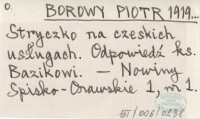 O. BOROWY PIOTR 1919...
Stryczko na czeskich
usługach. Odpowiedź ks.
Bazikowi. — Nowiny
Spisko-Orawskie 1, nr 1.
BT/006/0238